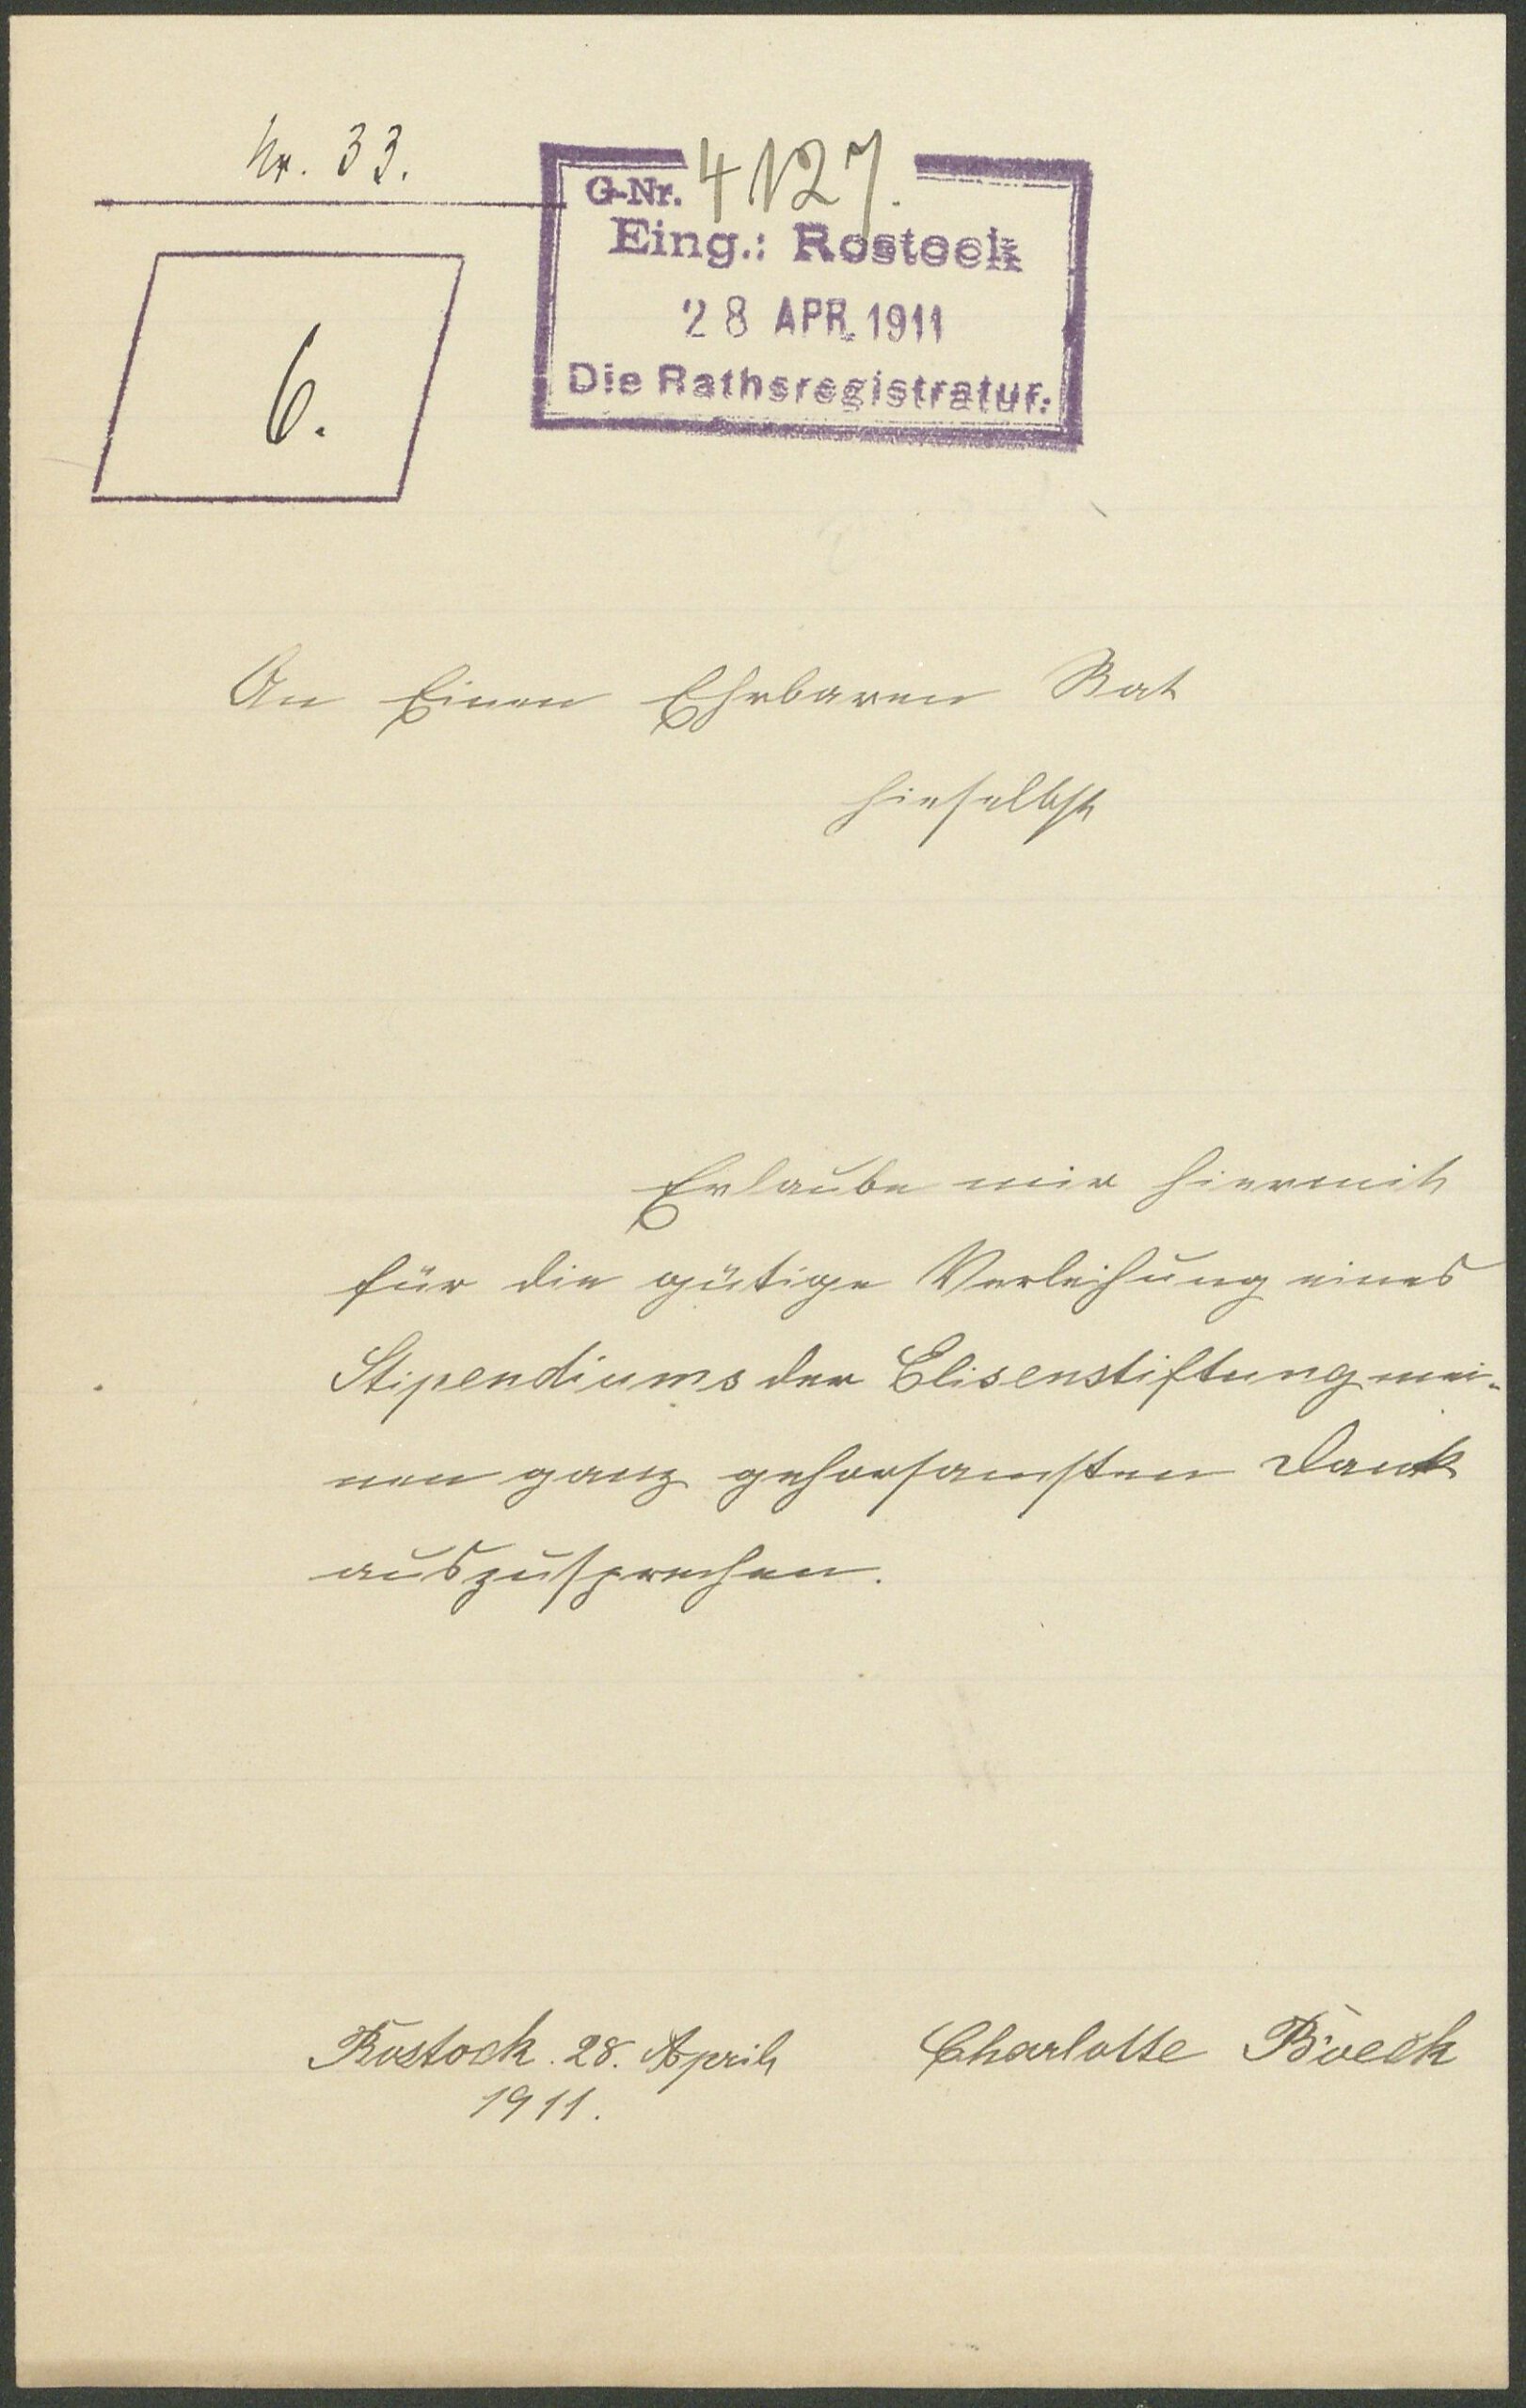 Nr. 33.
G-Nr. 4127.
Eing.: Rostock
28 APR. 1911
Die Rathsregistratur.
6.
An Einen Ehrbaren Rat
hieselbst
Erlaube mir hiermit
für die gütige Verleihung eines
Stipendiums der Elisenstiftung mei-
nen ganz gehorsamsten Dank
auszusprechen.
Rostock. 28. April
1911.
Charlotte Böeck